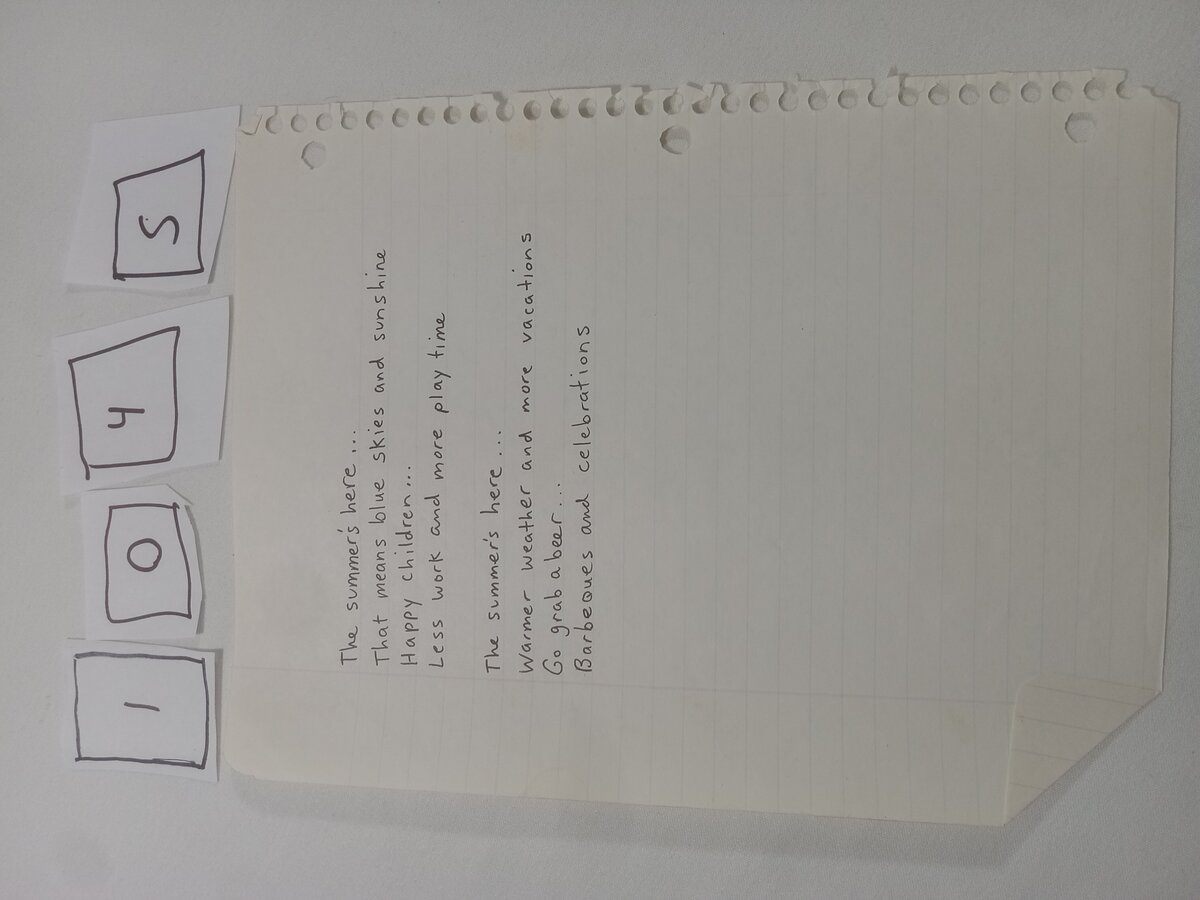 1 0 4 5
The summer's here...
That means blue skies and sunshine
Happy children...
Less work and more play time
The summer's here...
Warmer weather and more vacations
Go grab a beer...
Barbeques and celebrations